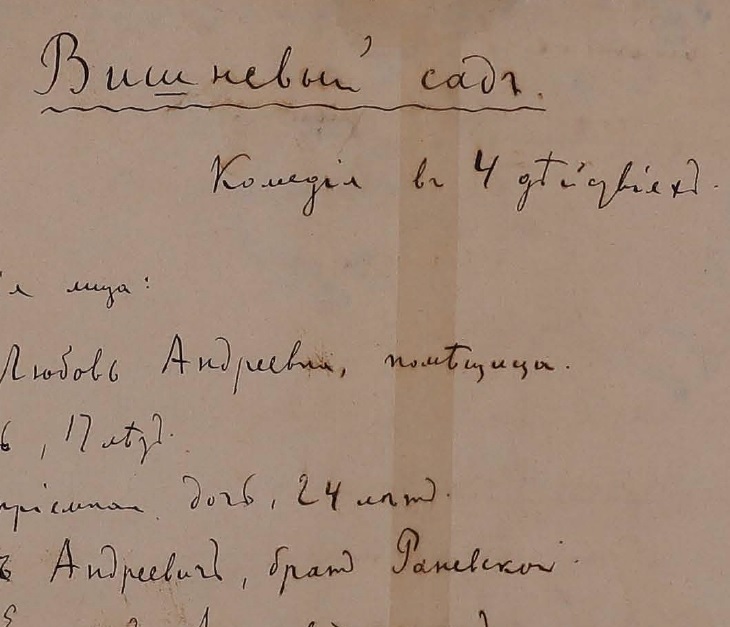 Вишневый садъ.
Комедія въ 4 дѣйствіяхъ.
лица:
Любовь Андреевна, помѣщица.
ь, 17 лѣтъ.
пріемная дочь, 24 лѣтъ.
ъ Андреевичъ, братъ Раневской.